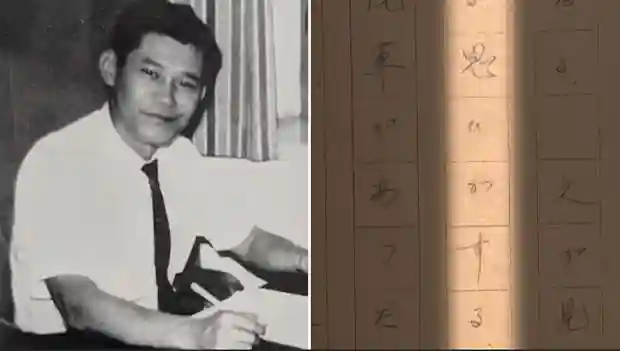 る。 が見
思いがする
車があった